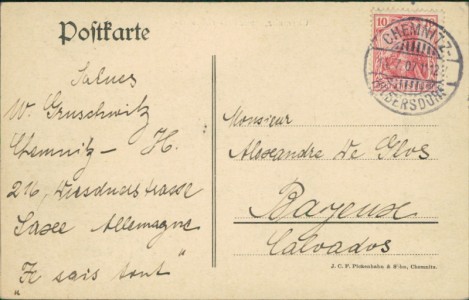 Postkarte
Salues
W. Gruschwitz
Chemnitz - H.
216, Dresdnerstrasse
Saxe Allemagne
"Je sais tout"
10
CHEMNITZ-
07
ERSDORF
Monsieur
Alexandre De
Bayeux
Calvados
J. C. F. Pickenhahn & Sohn, Chemnitz.